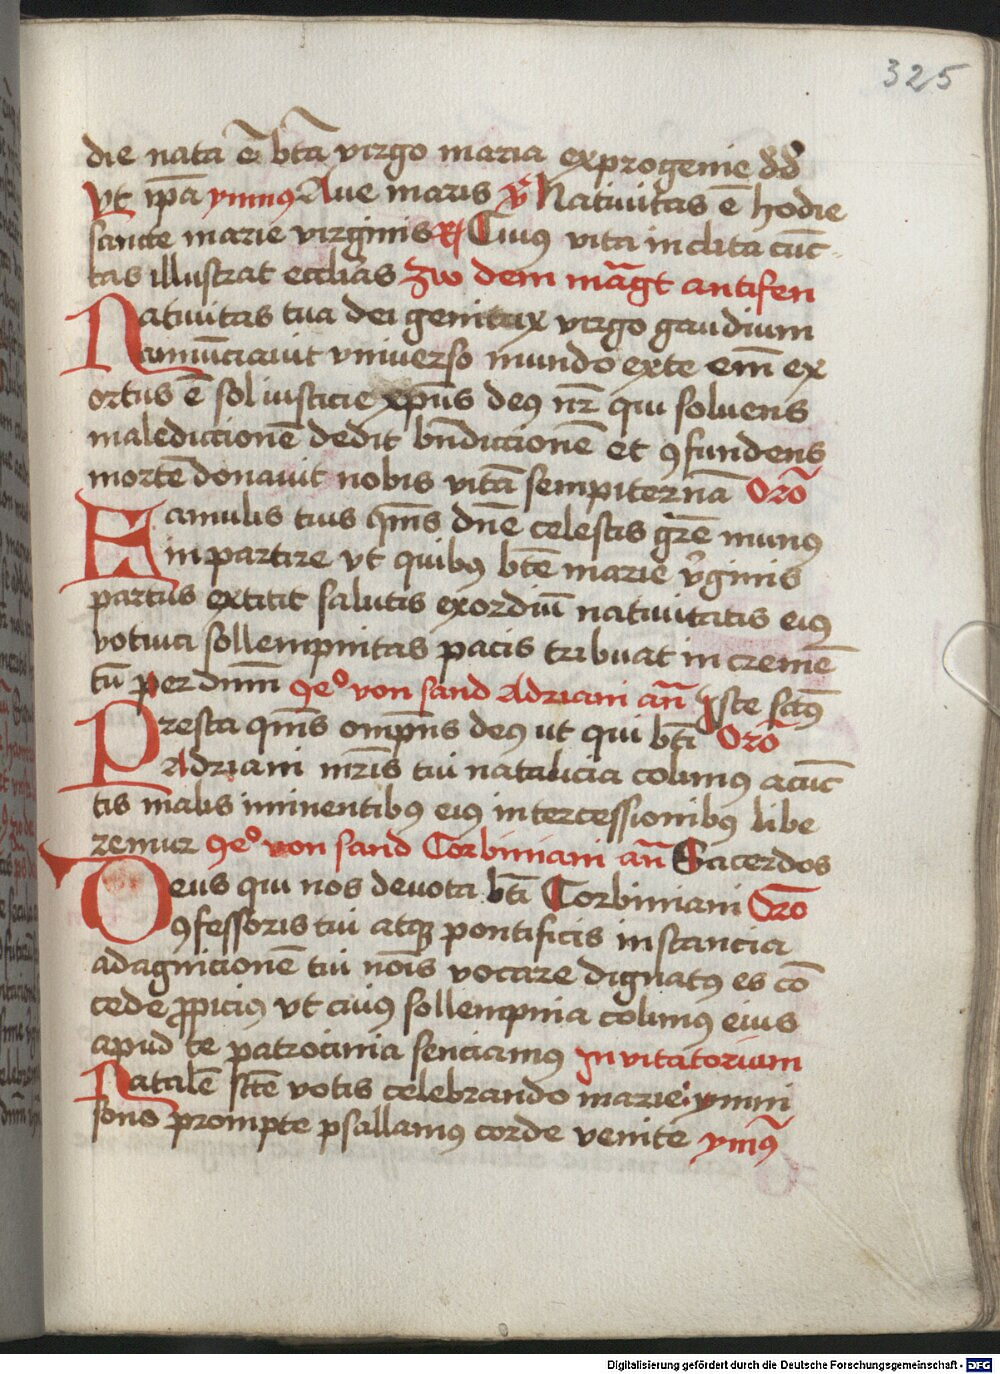 325
die nata ē btā virgo maria ex progenie dd
vt ip̄a ymnus Aue maris v̄ Natiuitas ē hodie
sancte marie virginis R Cuius vita in clita cūc
tas illustrat ecclīas Zw dem māgt antifen
Natiuitas tua dei genitrix virgo gaudium
annūciauit vniuerso mundo ex te em̄ ex
ortus ē sol iusticie xp̄us deꝰ nr̄ qui soluens
maledictionē dedit bn̄dictionē et ꝯfundens
mortē donauit nobis vitā sempiternā Orō
Famulis tuis qm̄s dn̄e celestis gr̄e munꝰ
inpartire vt quibꝰ btē marie v̓ginis
partus extitit salutis exordiū natiuitatis eiꝰ
votiua sollempnitas pacis tribuat in cremē
tū per dnm̄ ꝯeº von sand Adriani an̄ Iste sctꝰ̄
Presta qm̄s omp̄ns deꝰ ut qui bti Orō
Adriani mr̄is tui natalicia colimꝰ a cūc
tis malis iminentibꝰ eiꝰ intercessionibꝰ libe
remur ꝯeº von sand Corbiniani an̄ Sacerdos
Deus qui nos deuota bti Corbiniani Orō
ꝯfessoris tui atqꝫ pontificis instancia
ad agnicionē tui nōis vocare dignatꝰ es cō
cede ꝓpiciꝰ vt cuiꝰ sollempnia colimꝰ eius
apud te patrocinia senciamꝰ Inuitatorium
Natalē stē votis celebrando marie: ymni
sono prompte psallamꝰ corde venite ymꝰ̄
Digitalisierung gefördert durch die Deutsche Forschungsgemeinschaft - DFG